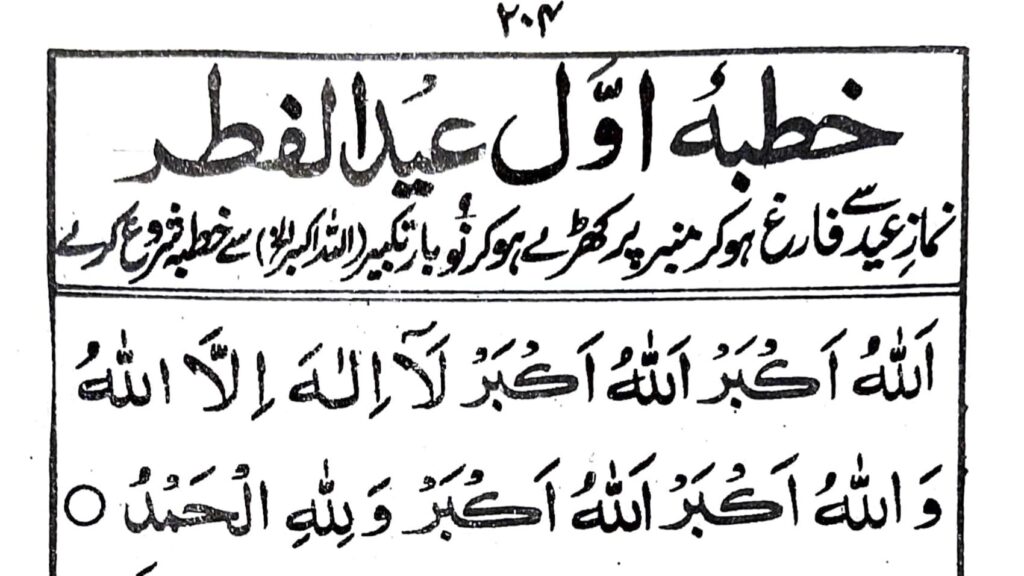 ۲۰۴
خطبۂ اوّل عیُدالفطر
نمازِ عید سے فارغ ہوکر منبر پر کھڑے ہوکر نَو بار تکبیر (اللہ اکبر الخ) سے خطبہ شروع کرے
اَللّٰهُ اَكْبَرُ اَللّٰهُ اَكْبَرُ لَآ اِلٰهَ اِلَّا اللّٰهُ
وَ اللّٰهُ اَكْبَرُ اَللّٰهُ اَكْبَرُ وَ لِلّٰهِ الْحَمْدُ ○